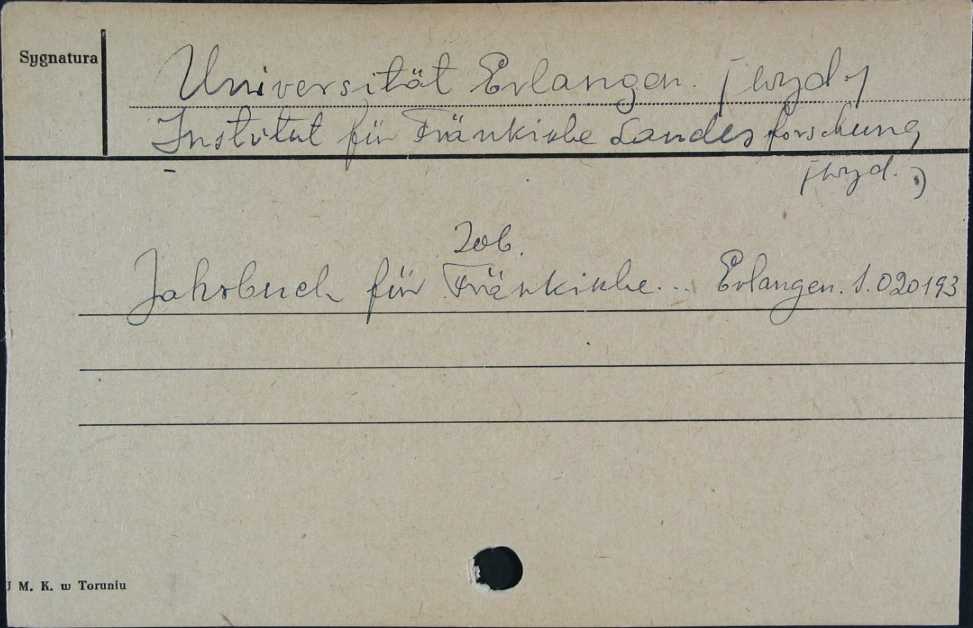 Sygnatura
Universität Erlangen. (wyd.)
Institut für Fränkische Landesforschung
(wyd.)
Zob.
Jahrbuch für Fränkische... Erlangen. S.020193
U M. K. w Toruniu